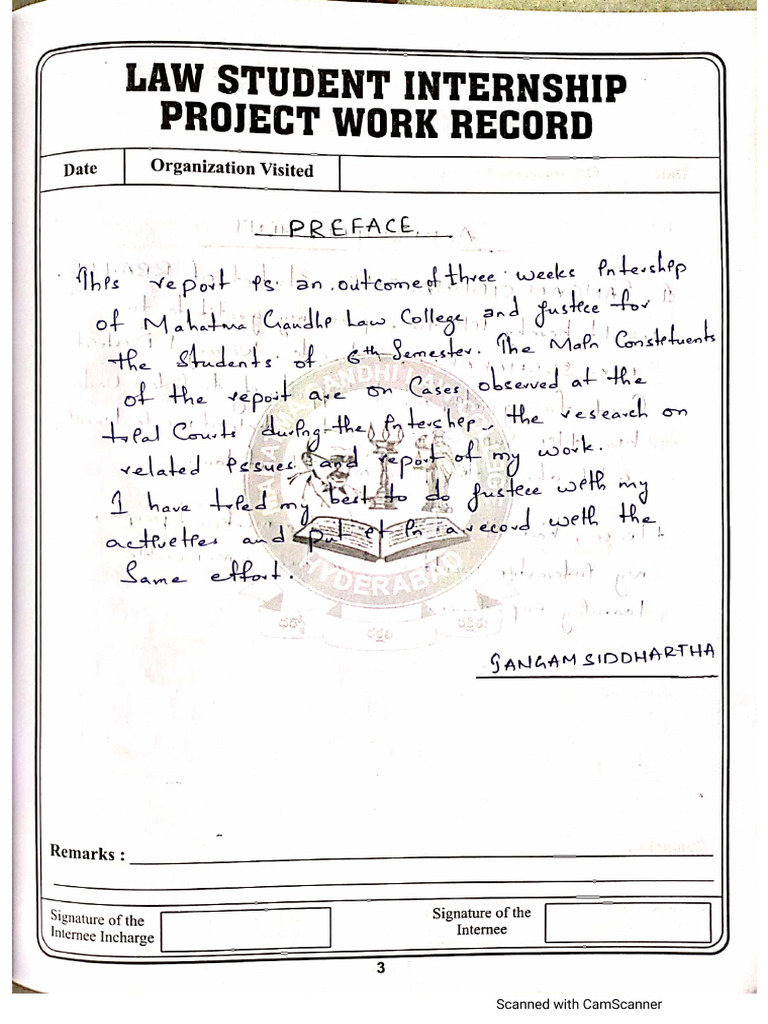 LAW STUDENT INTERNSHIP
PROJECT WORK RECORD
Date
Organization Visited
PREFACE
This report is an outcome of three weeks intership
of Mahatma Gandhi Law College and justice for
the Students of 6th Semester. The Main Constituents
of the report are on Cases observed at the
trial Courts during the intership, the research on
related issues and report of my work.
I have tried my best to do justice with my
activities and put it in a record with the
Same effort.
GANGAM SIDDHARTHA
MAHATMA GANDHI LAW COLLEGE
HYDERABAD
Remarks :
Signature of the
Internee Incharge
Signature of the
Internee
3
Scanned with CamScanner